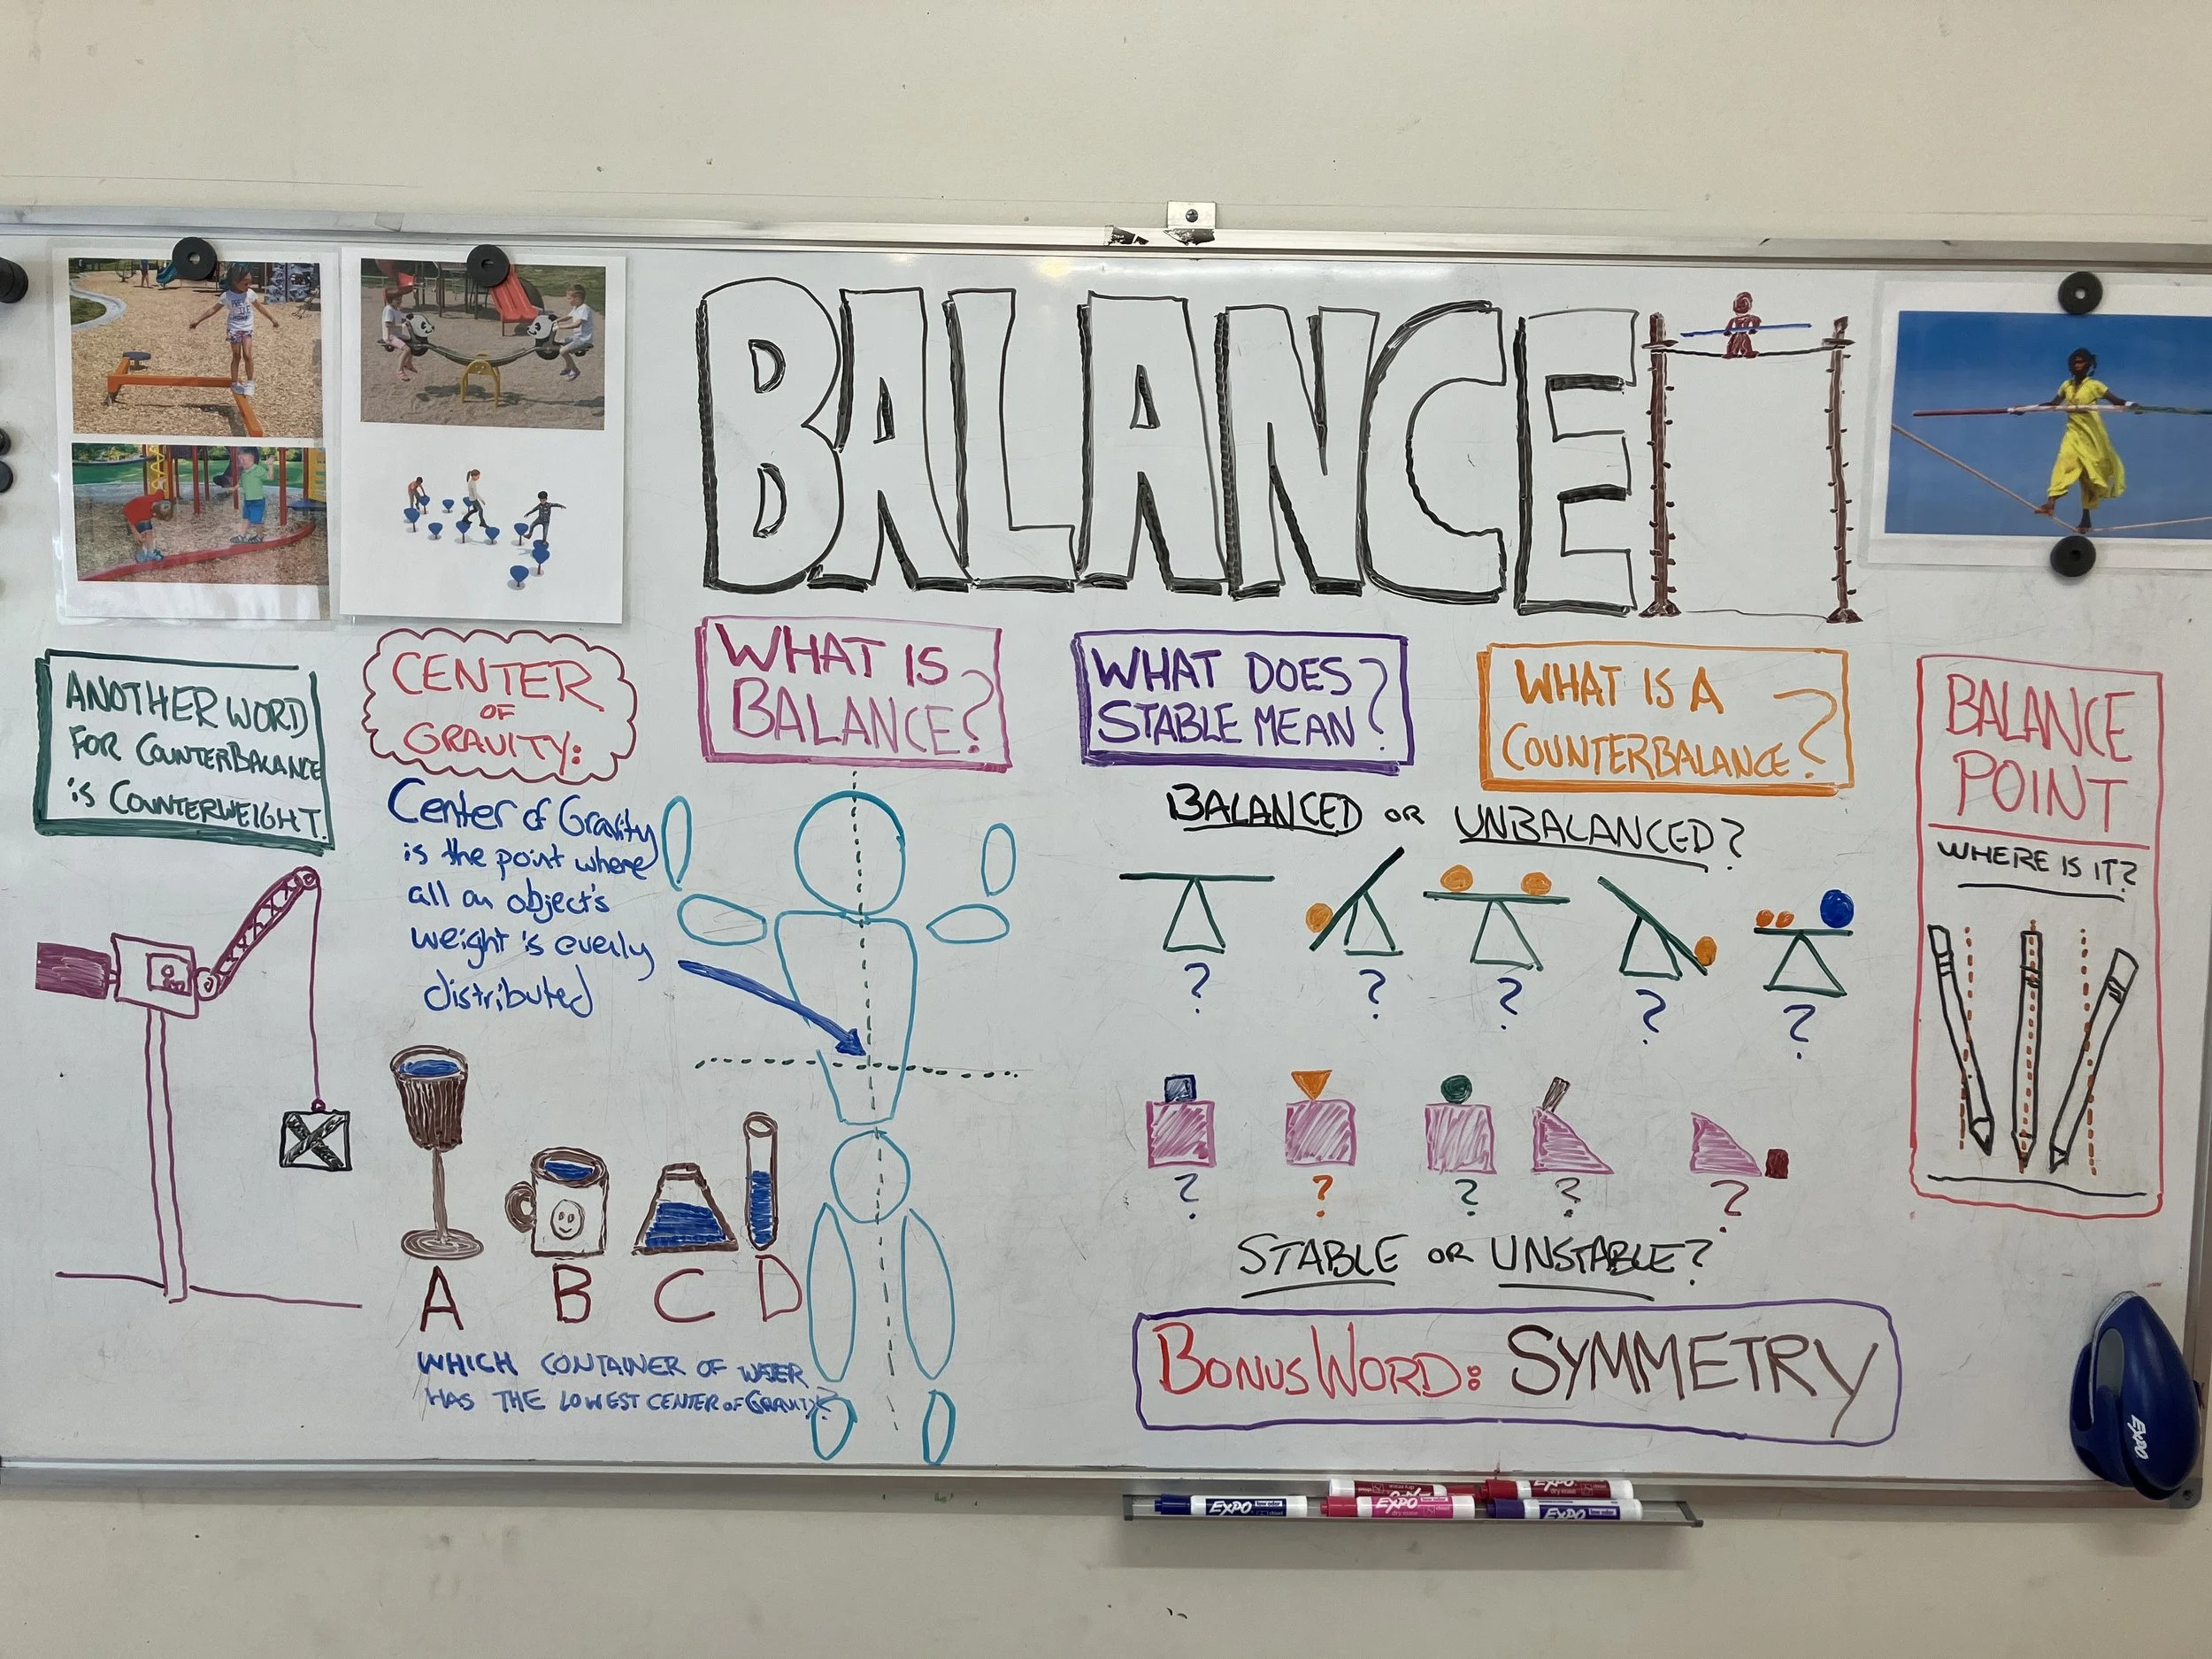 BALANCE
ANOTHER WORD
FOR COUNTERBALANCE
is COUNTERWEIGHT.
CENTER
OF
GRAVITY:
Center of Gravity
is the point where
all an object's
weight is evenly
distributed
A B C D
WHICH CONTAINER OF WATER
HAS THE LOWEST CENTER OF GRAVITY?
WHAT IS
BALANCE?
WHAT DOES
STABLE MEAN?
WHAT IS A
COUNTERBALANCE?
BALANCED OR UNBALANCED?
? ? ? ? ?
? ? ? ? ?
STABLE OR UNSTABLE?
BONUS WORD: SYMMETRY
BALANCE
POINT
WHERE IS IT?
EXPO
EXPO
EXPO
EXPO
EXPO